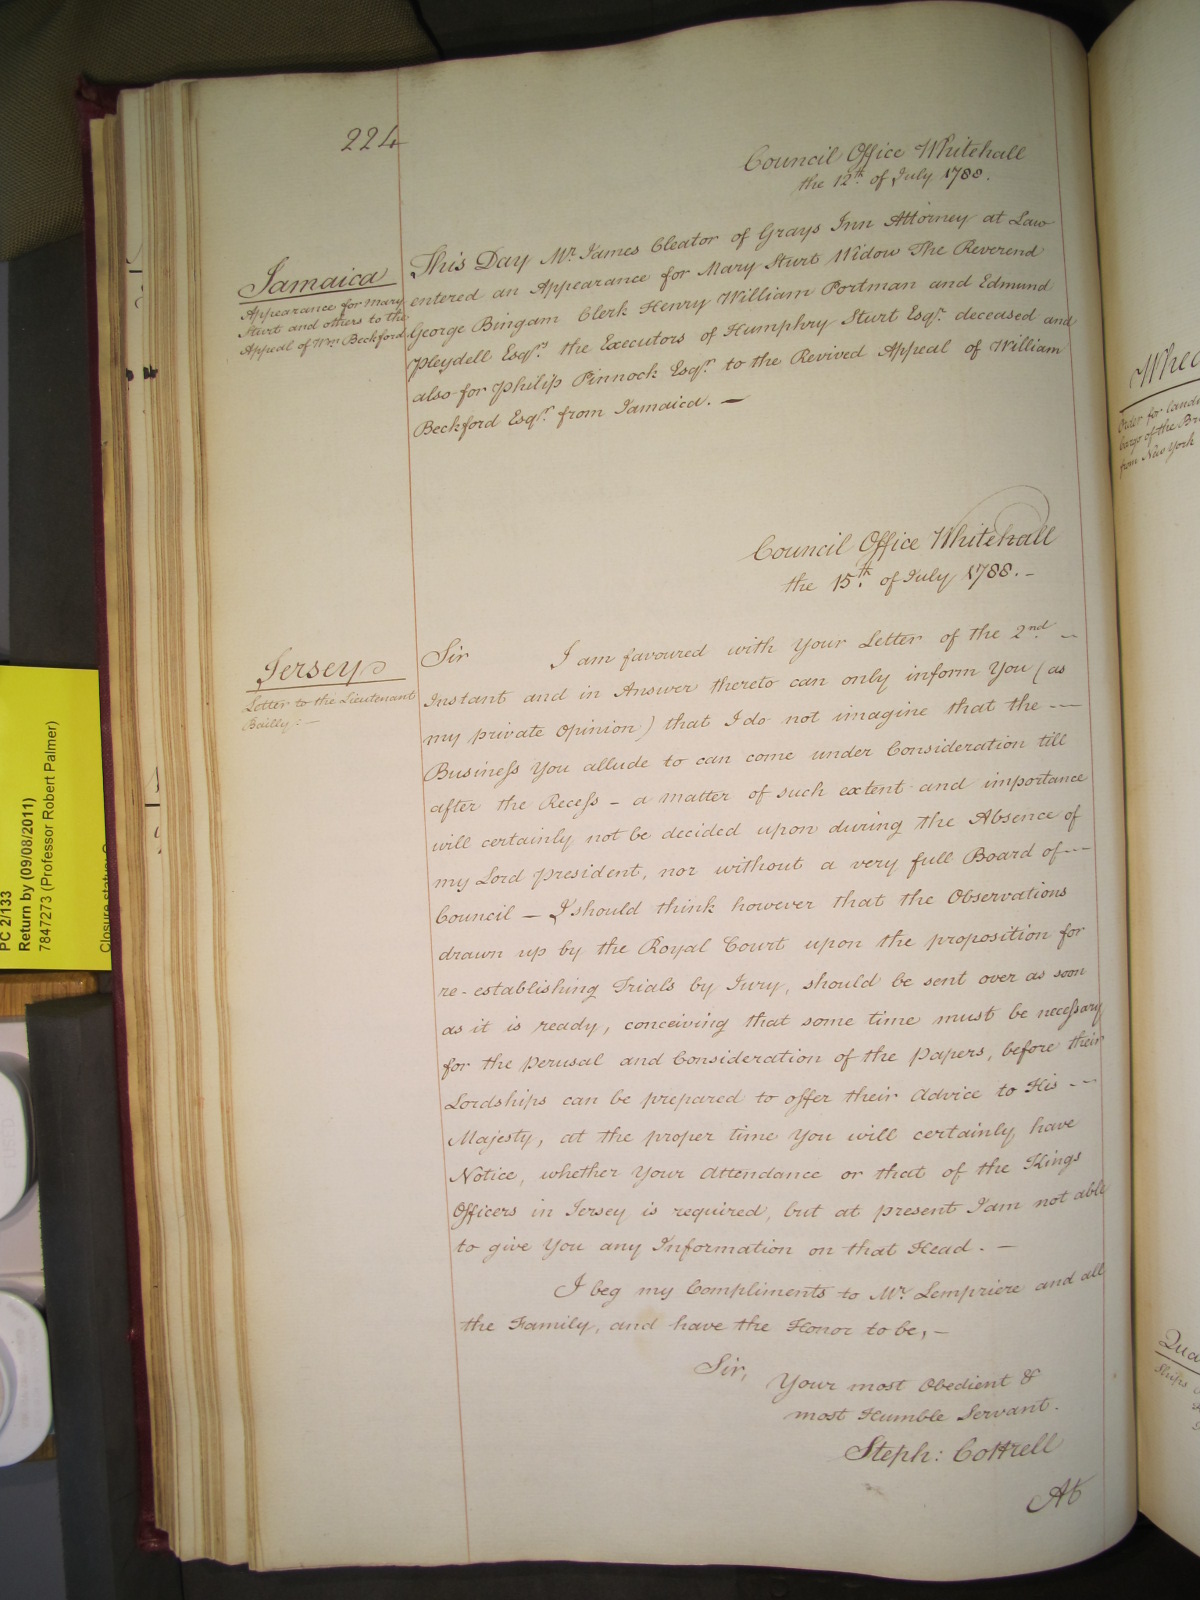 224
Council Office Whitehall
the 12th of July 1788.
Jamaica
Appearance for Mary
Sturt and others to the
Appeal of Wm Beckford
This Day Mr. James Cleator of Grays Inn Attorney at Law
entered an Appearance for Mary Sturt Widow The Reverend
George Bingam Clerk Henry William Portman and Edmund
Pleydell Esqrs. the Executors of Humphry Sturt Esqr. deceased and
also for Philip Pinnock Esqr. to the Revived Appeal of William
Beckford Esqr. from Jamaica. —
Council Office Whitehall
the 15th. of July 1788. -
Jersey
Letter to the Lieutenant
Bailly: —
Sir I am favoured with Your Letter of the 2nd. -
Instant and in Answer thereto can only inform You (as
my private Opinion) that I do not imagine that the ---
Business You allude to can come under Consideration till
after the Recess - a matter of such extent and importance
will certainly not be decided upon during the Absence of
my Lord President, nor without a very full Board of ---
Council — I should think however that the Observations
drawn up by the Royal Court upon the proposition for
re-establishing Trials by Jury, should be sent over as soon
as it is ready, conceiving that some time must be necessary
for the Perusal and Consideration of the Papers, before their
Lordships can be prepared to offer their Advice to His --
Majesty, at the proper time You will certainly have
Notice, whether Your Attendance or that of the Kings
Officers in Jersey is required, but at present I am not able
to give You any Information on that Head. —
I beg my Compliments to Mr. Lempriere and all
the Family, and have the Honor to be, -
Sir,
Your most Obedient &
most Humble Servant.
Steph: Cottrell
At
PC 2/133
Return by (09/08/2011)
7847273 (Professor Robert Palmer)
Closure status:
Order for landi
Cargo of the Br
from New York
Ships